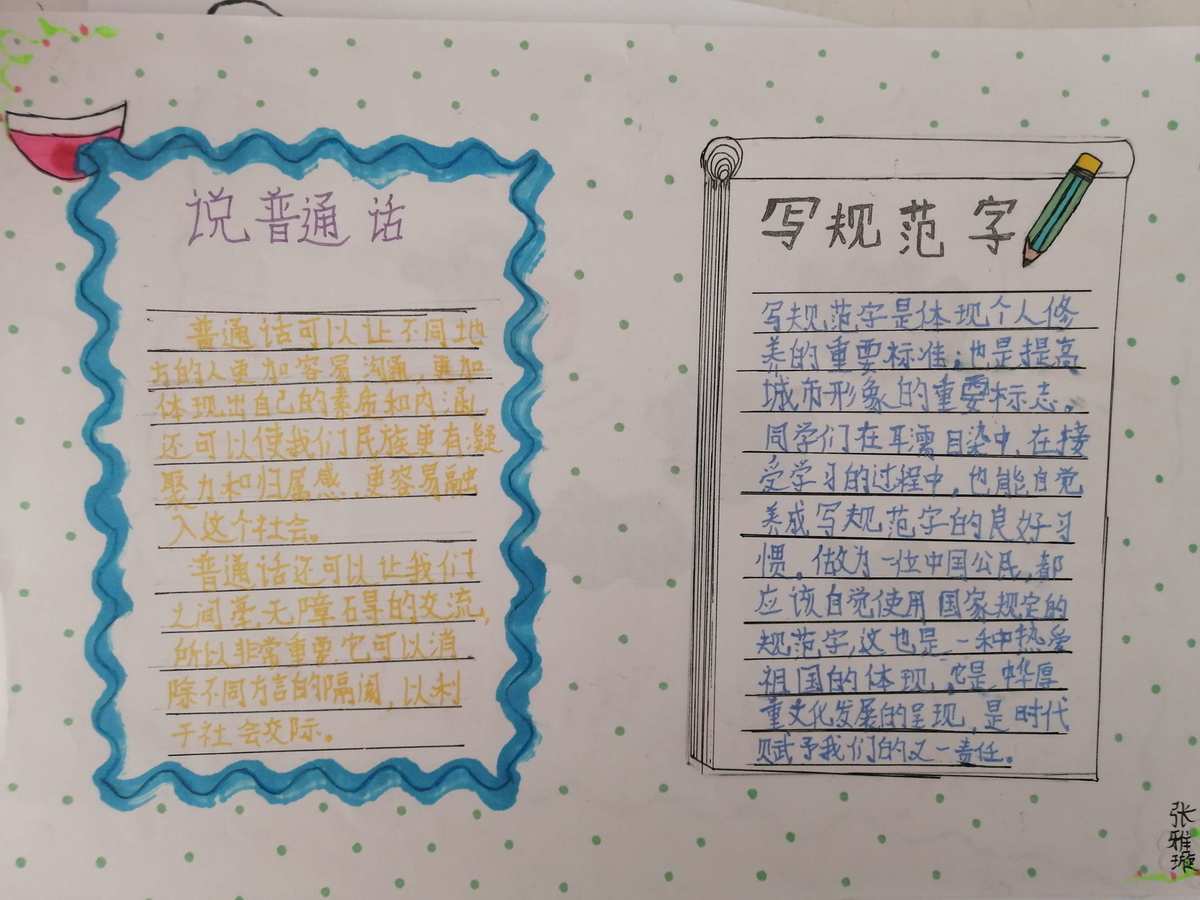 说普通话
普通话可以让不同地
方的人更加容易沟通,更加
体现出自己的素质和内涵,
还可以使我们民族更有凝
聚力和归属感,更容易融
入这个社会。
普通话还可以让我们
之间毫无障碍的交流,
所以非常重要.它可以消
除不同方言的隔阂,以利
于社会交际。
写规范字
写规范字是体现个人修
养的重要标准;也是提高
城市形象的重要标志。
同学们在耳濡目染中,在接
受学习的过程中,也能自觉
养成写规范字的良好习
惯。做为一位中国公民,都
应该自觉使用国家规定的
规范字,这也是一种热爱
祖国的体现,它是中华厚
重文化发展的呈现,是时代
赋予我们的又一责任。
张雅璇